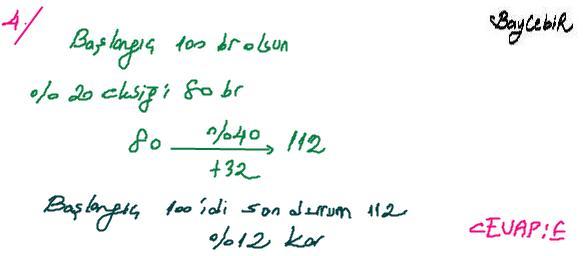 4/
BayCebiR
Başlangıç 100 br olsun
% 20 eksiği 80 br
80 %40 112
+32
Başlangıç 100 idi son durum 112
%12 kar
CEVAP: E